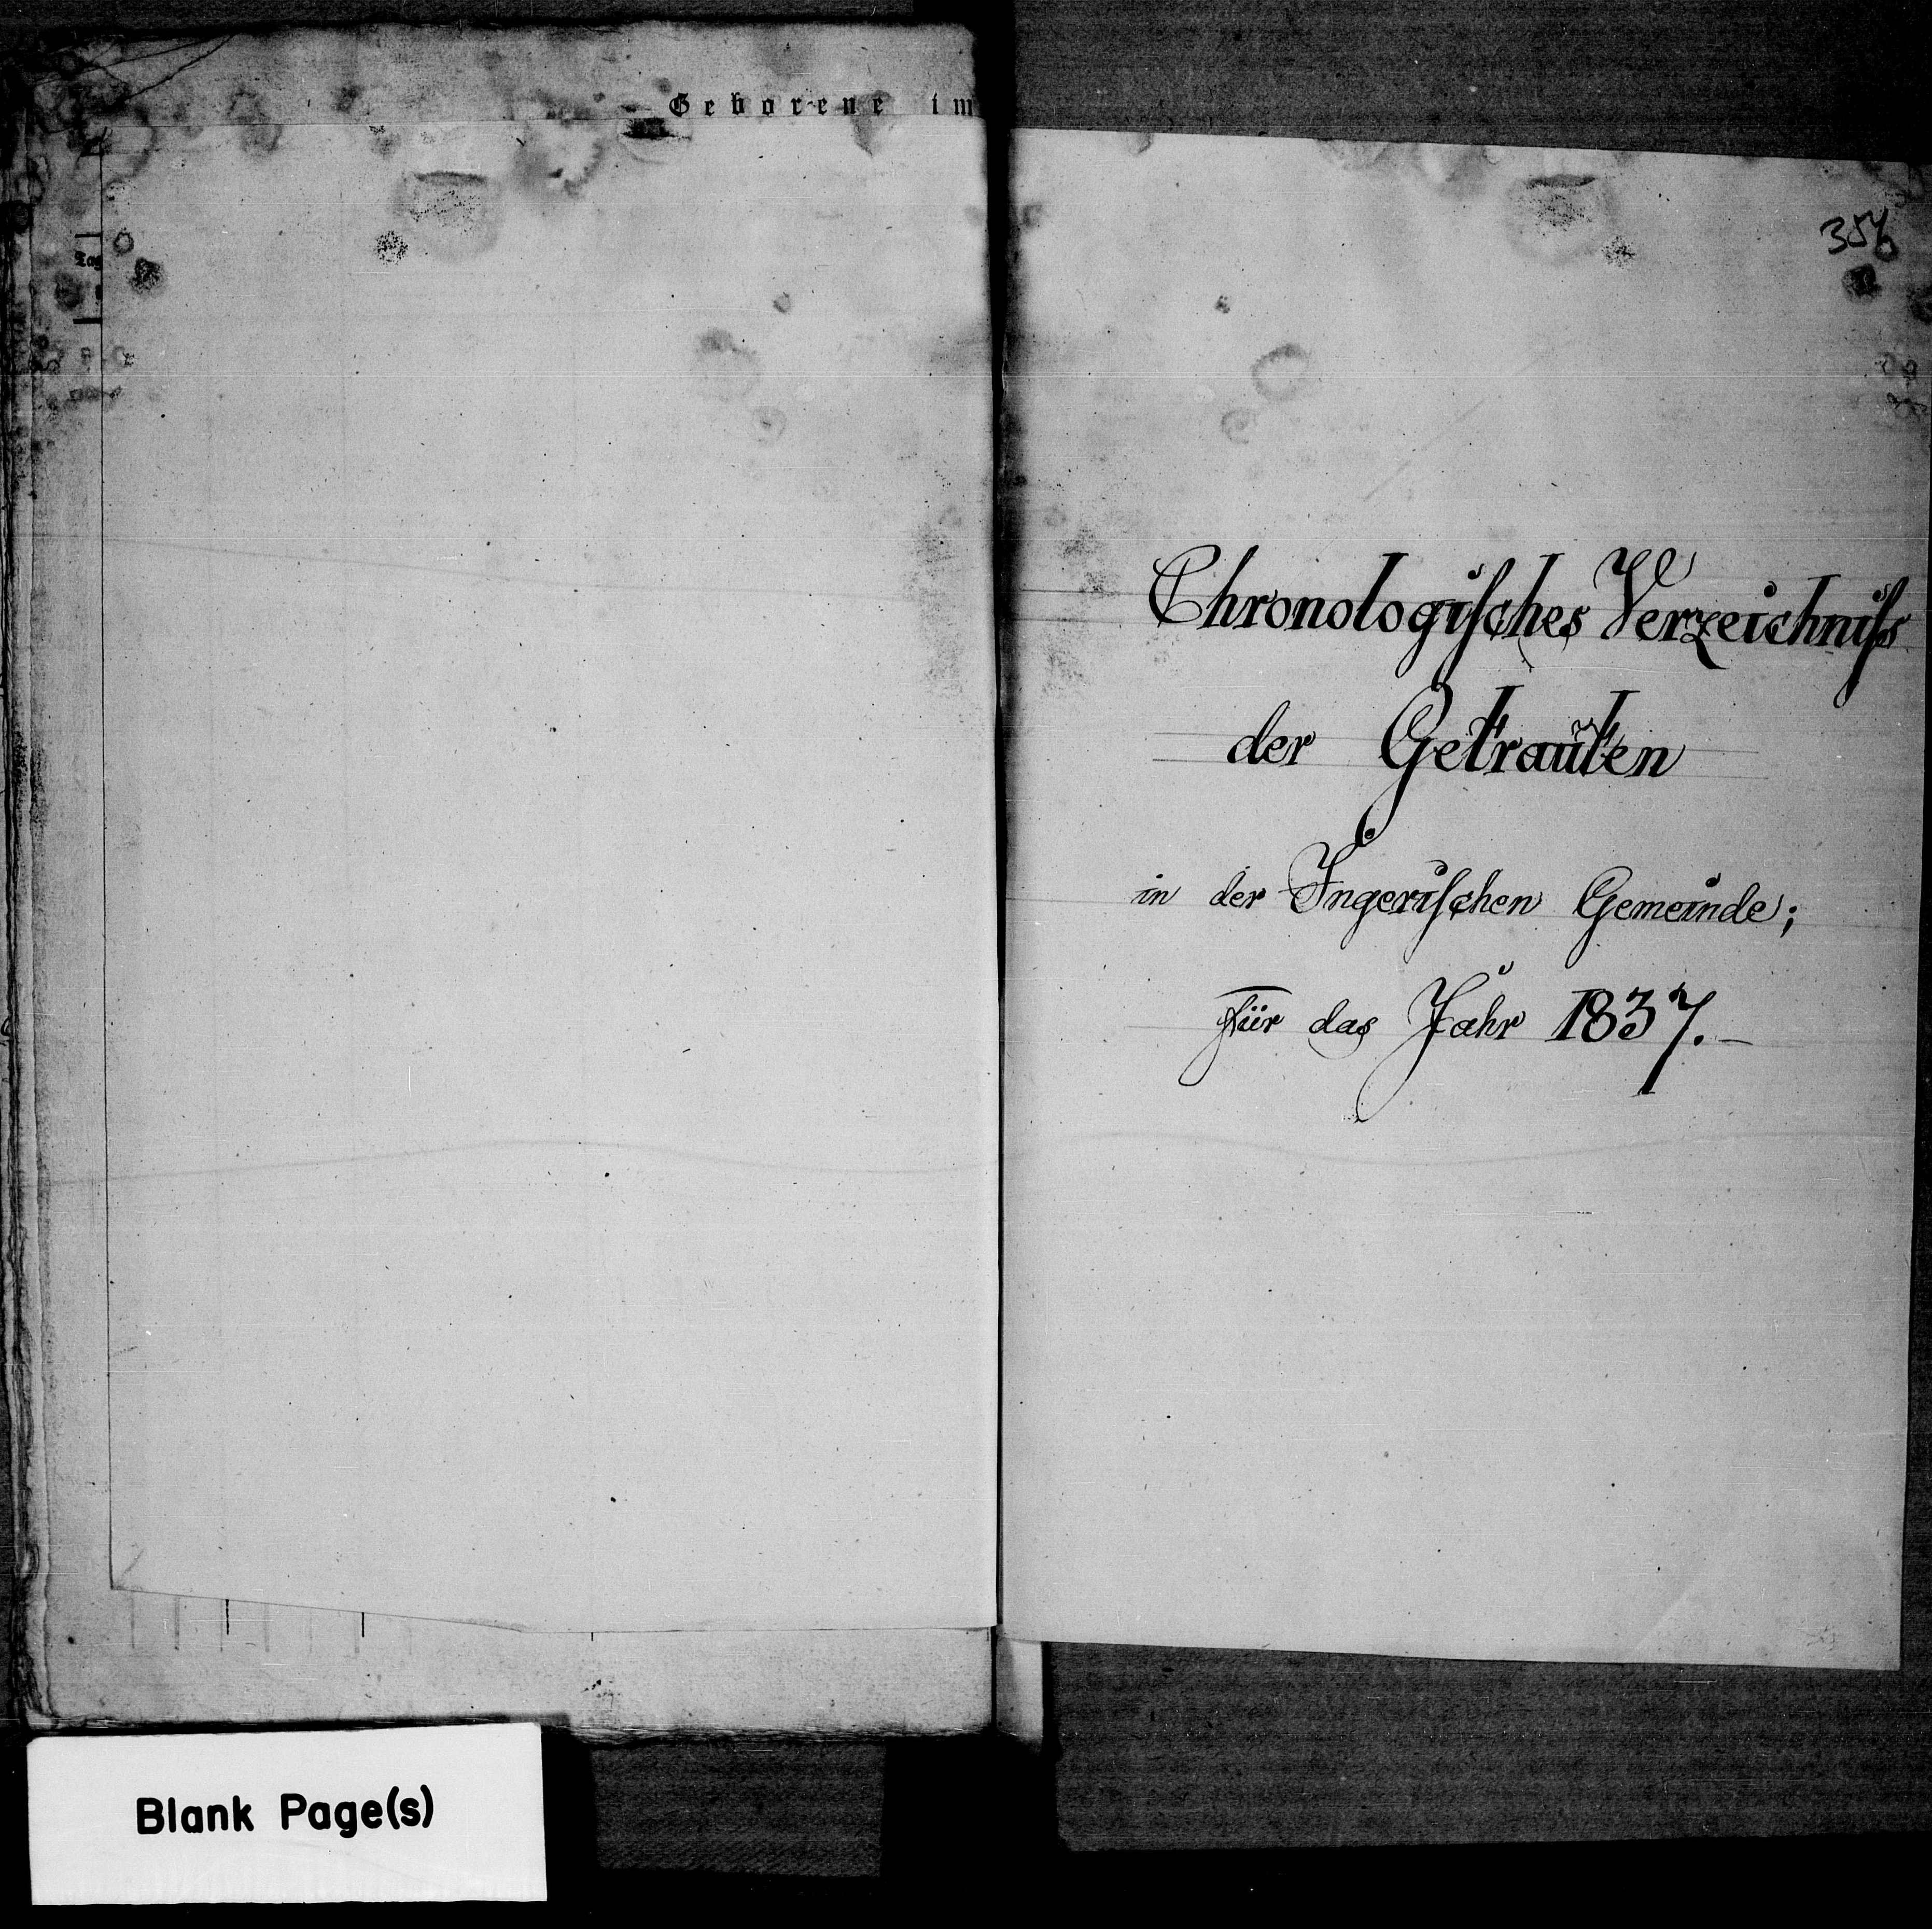 Geborene im
Tag
Chronologisches Verzeichniſs
der Getrauten
in der Ingeriſchen Gemeinde;
für das Jahr 1837.–
Blank Page(s)